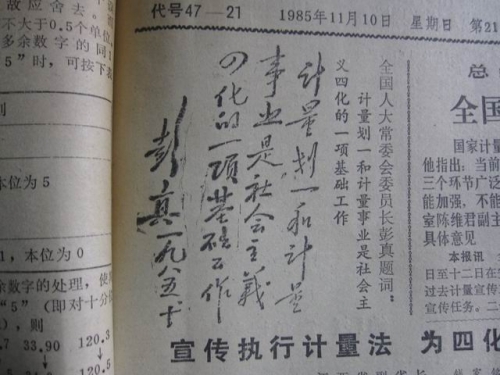 故应舍去。
不大于0.5个单位，
多余数字的同
5”时，可按下表
则
本位为 5
1，本位为 0
余数字的处理，使
“5”（即对十分
），则
7 33.90 120.3
代号47—21 1985年11月10日 星期日 第21
全国人大常委会委员长彭真题词：
计量划一和计量事业是社会主
义四化的一项基础工作
计量划一和计量
事业是社会主义
四化的一项基础工作
彭真一九八五、十
总
全国
国家计量
他指出：当前
三个环节广泛
能加强，不能
室陈维君副主
具体意见
本报讯
日至十二日在
过去计量宣传
宣传任务。二
宣传执行计量法 为四化